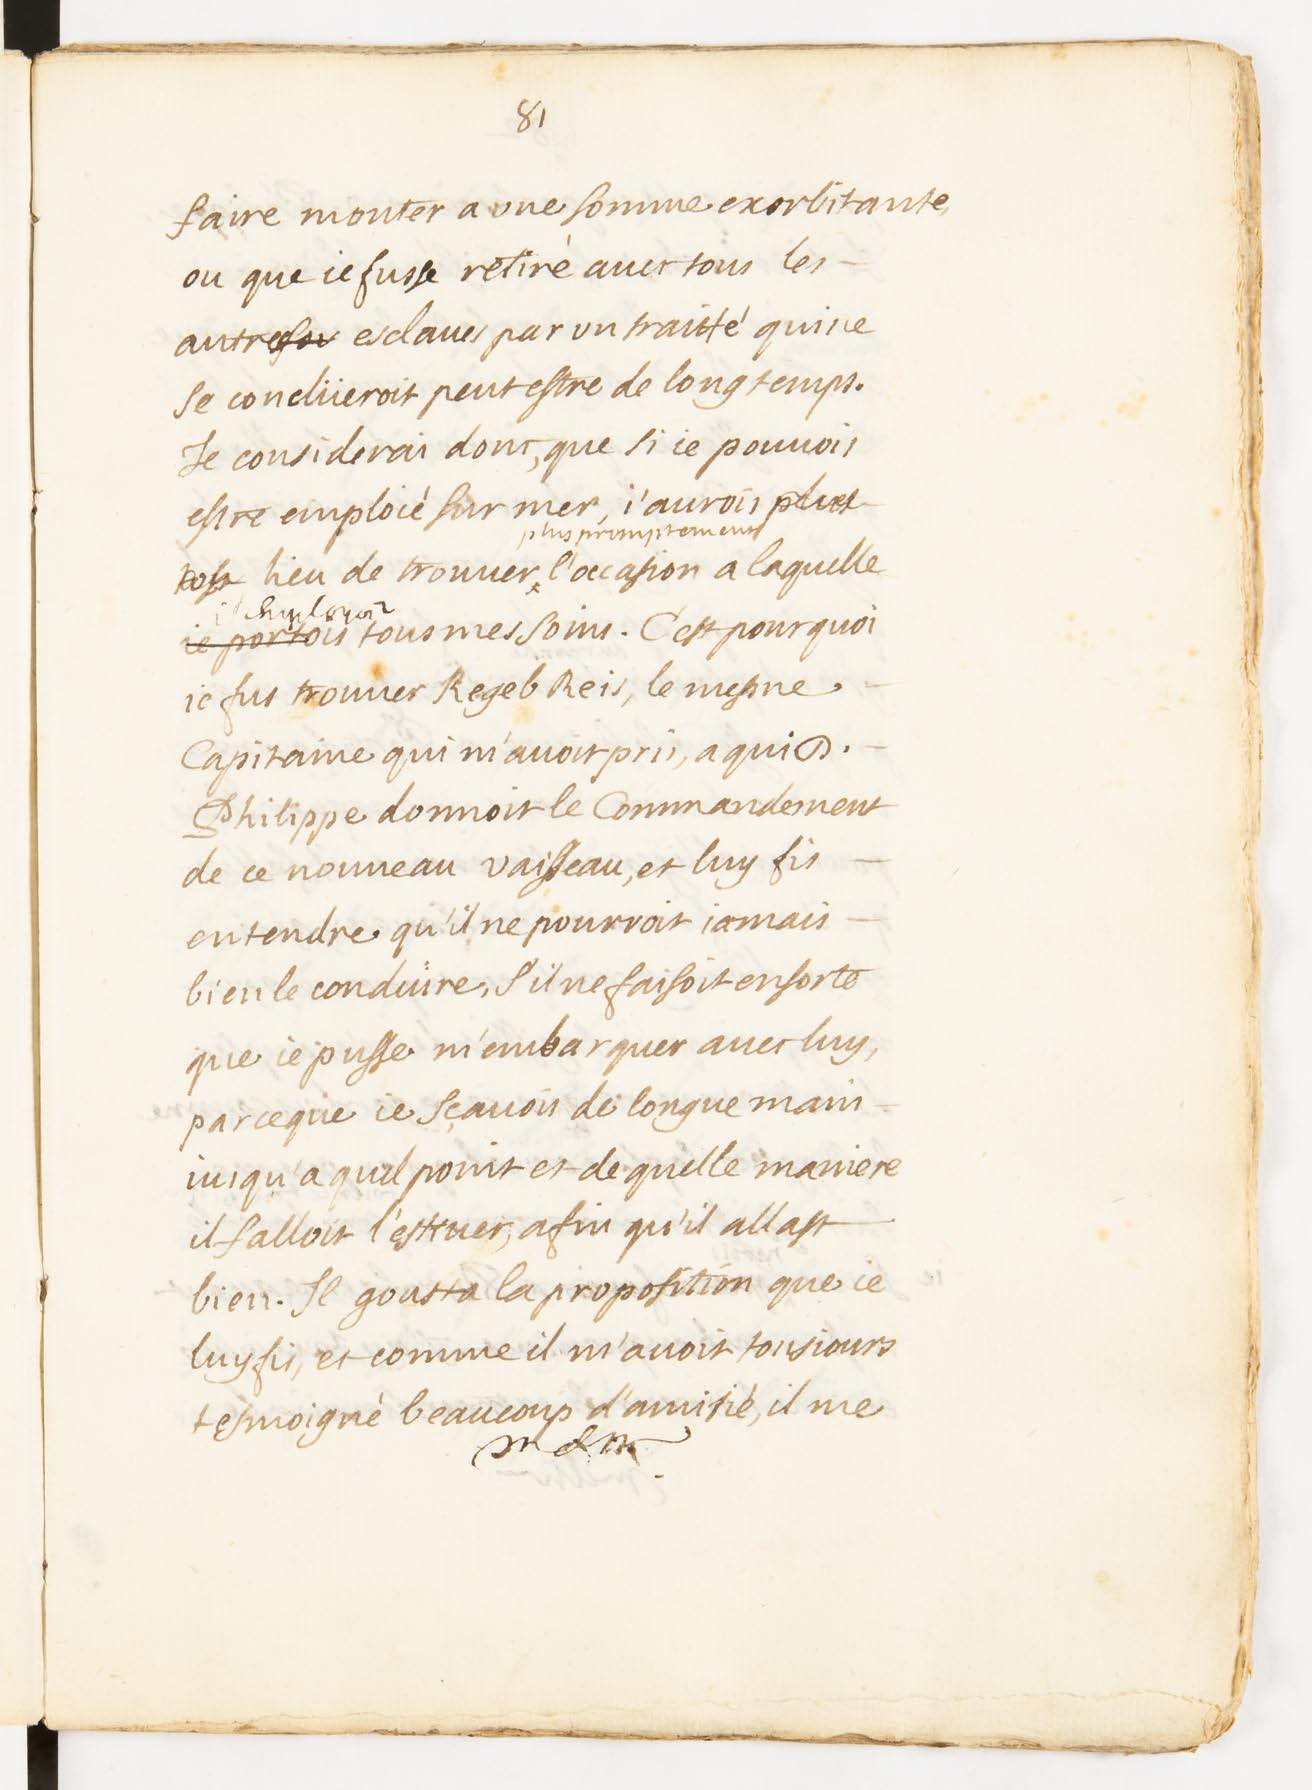 81
faire monter a vne somme exorbitante,
ou que ie fusse retiré auec tous les –
autres esclaues par vn traitté qui ne
se concluieroit peut estre de longtemps.
Je considerai donc, que si ie pouuois
estre emploié sur mer, i'aurois plust
plus promptement
tost lieu de trouuer l'occasion a laquelle
i'emploiois
ie portois tous mes soins. C'est pourquoi
ie fus trouuer Regeb Reis, le mesme –
Capitaine qui m'auoit pris, a qui D. –
Philippe donnoit le Commandement
de ce nouueau vaisseau, et luy fis –
entendre qu'il ne pourroit iamais –
bien le conduire, s'il ne faisoit en sorte
que ie pusse m'embarquer auec luy,
parceque ie sçauois de longue main –
iusqu'a quel point et de quelle maniere
il falloit l'estiuer, afin qu'il allast
bien. Il gousta la proposition que ie
luy fis, et comme il m'auoit tousiours
tesmoigné beaucoup d'amitié, il me